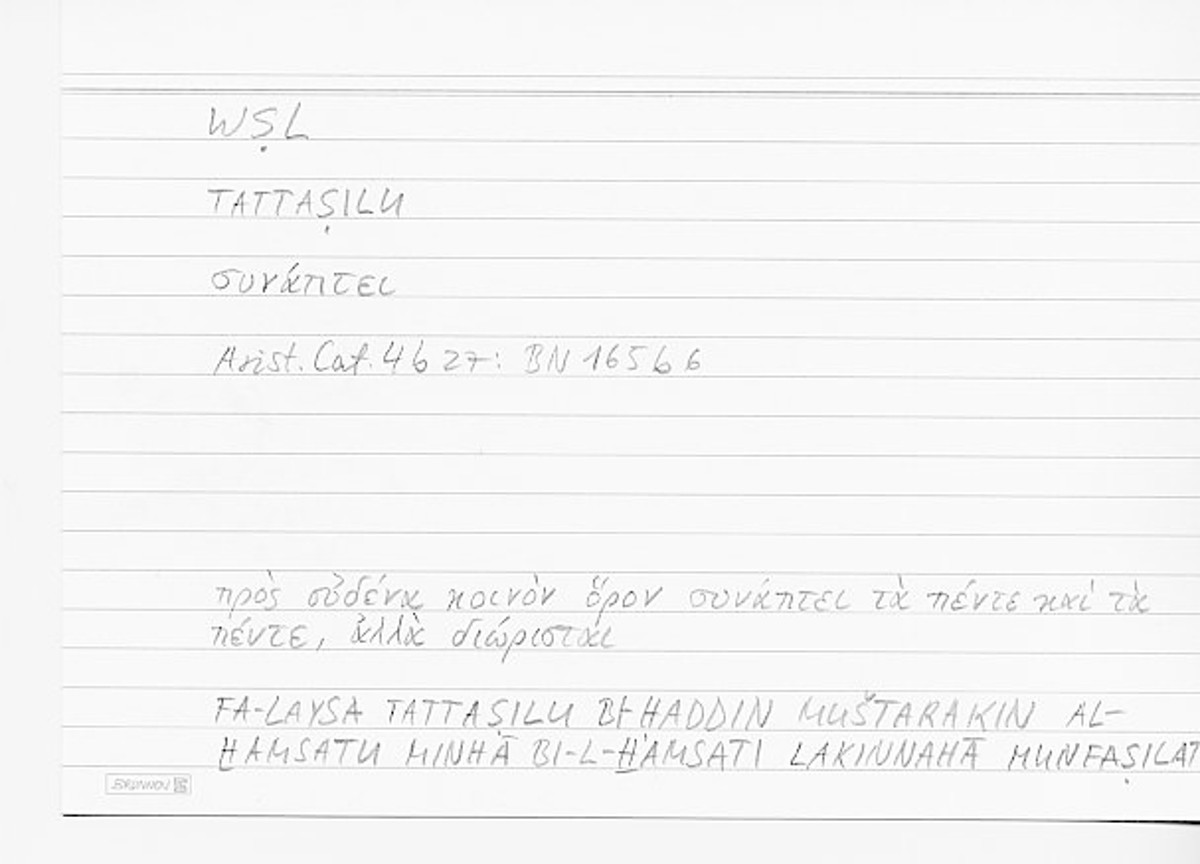 WṢL
TATTAṢILU
συνάπτει
Arist. Cat. 4 b 27: BN 165 b 6
πρὸς οὐδένα κοινὸν ὅρον συνάπτει τὰ πέντε καὶ τὰ
πέντε, ἀλλὰ διώρισται
FA-LAYSA TATTAṢILU BI-HADDIN MUŠTARAKIN AL-
ḪAMSATU MINHĀ BI-L-ḪAMSATI LAKINNAHĀ MUNFAṢILAT
BRUNNEN